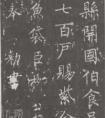 縣開國伯食邑
七百戶賜紫金
魚袋臣
奉勅書